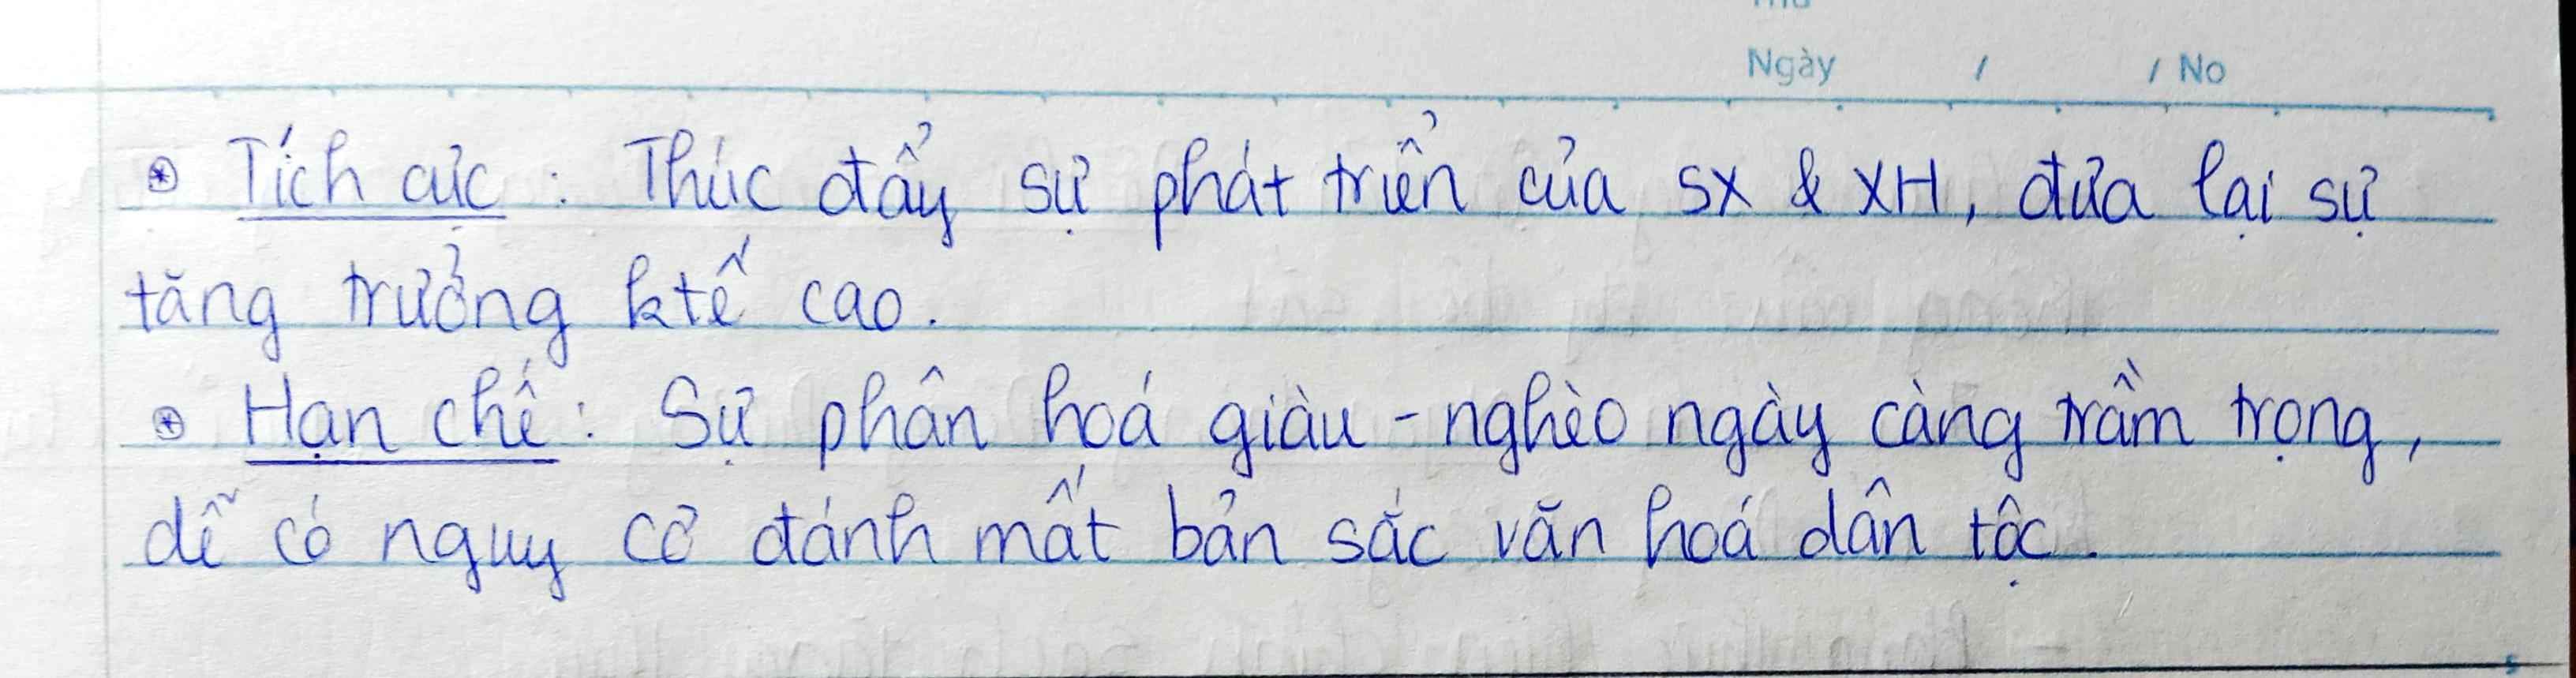 Ngày / / No
⊛ Tích cực : Thúc đẩy sự phát triển của SX & XH, đưa lại sự
tăng trưởng ktế cao.
⊛ Hạn chế : Sự phân hoá giàu - nghèo ngày càng trầm trọng,
dễ có nguy cơ đánh mất bản sắc văn hoá dân tộc.